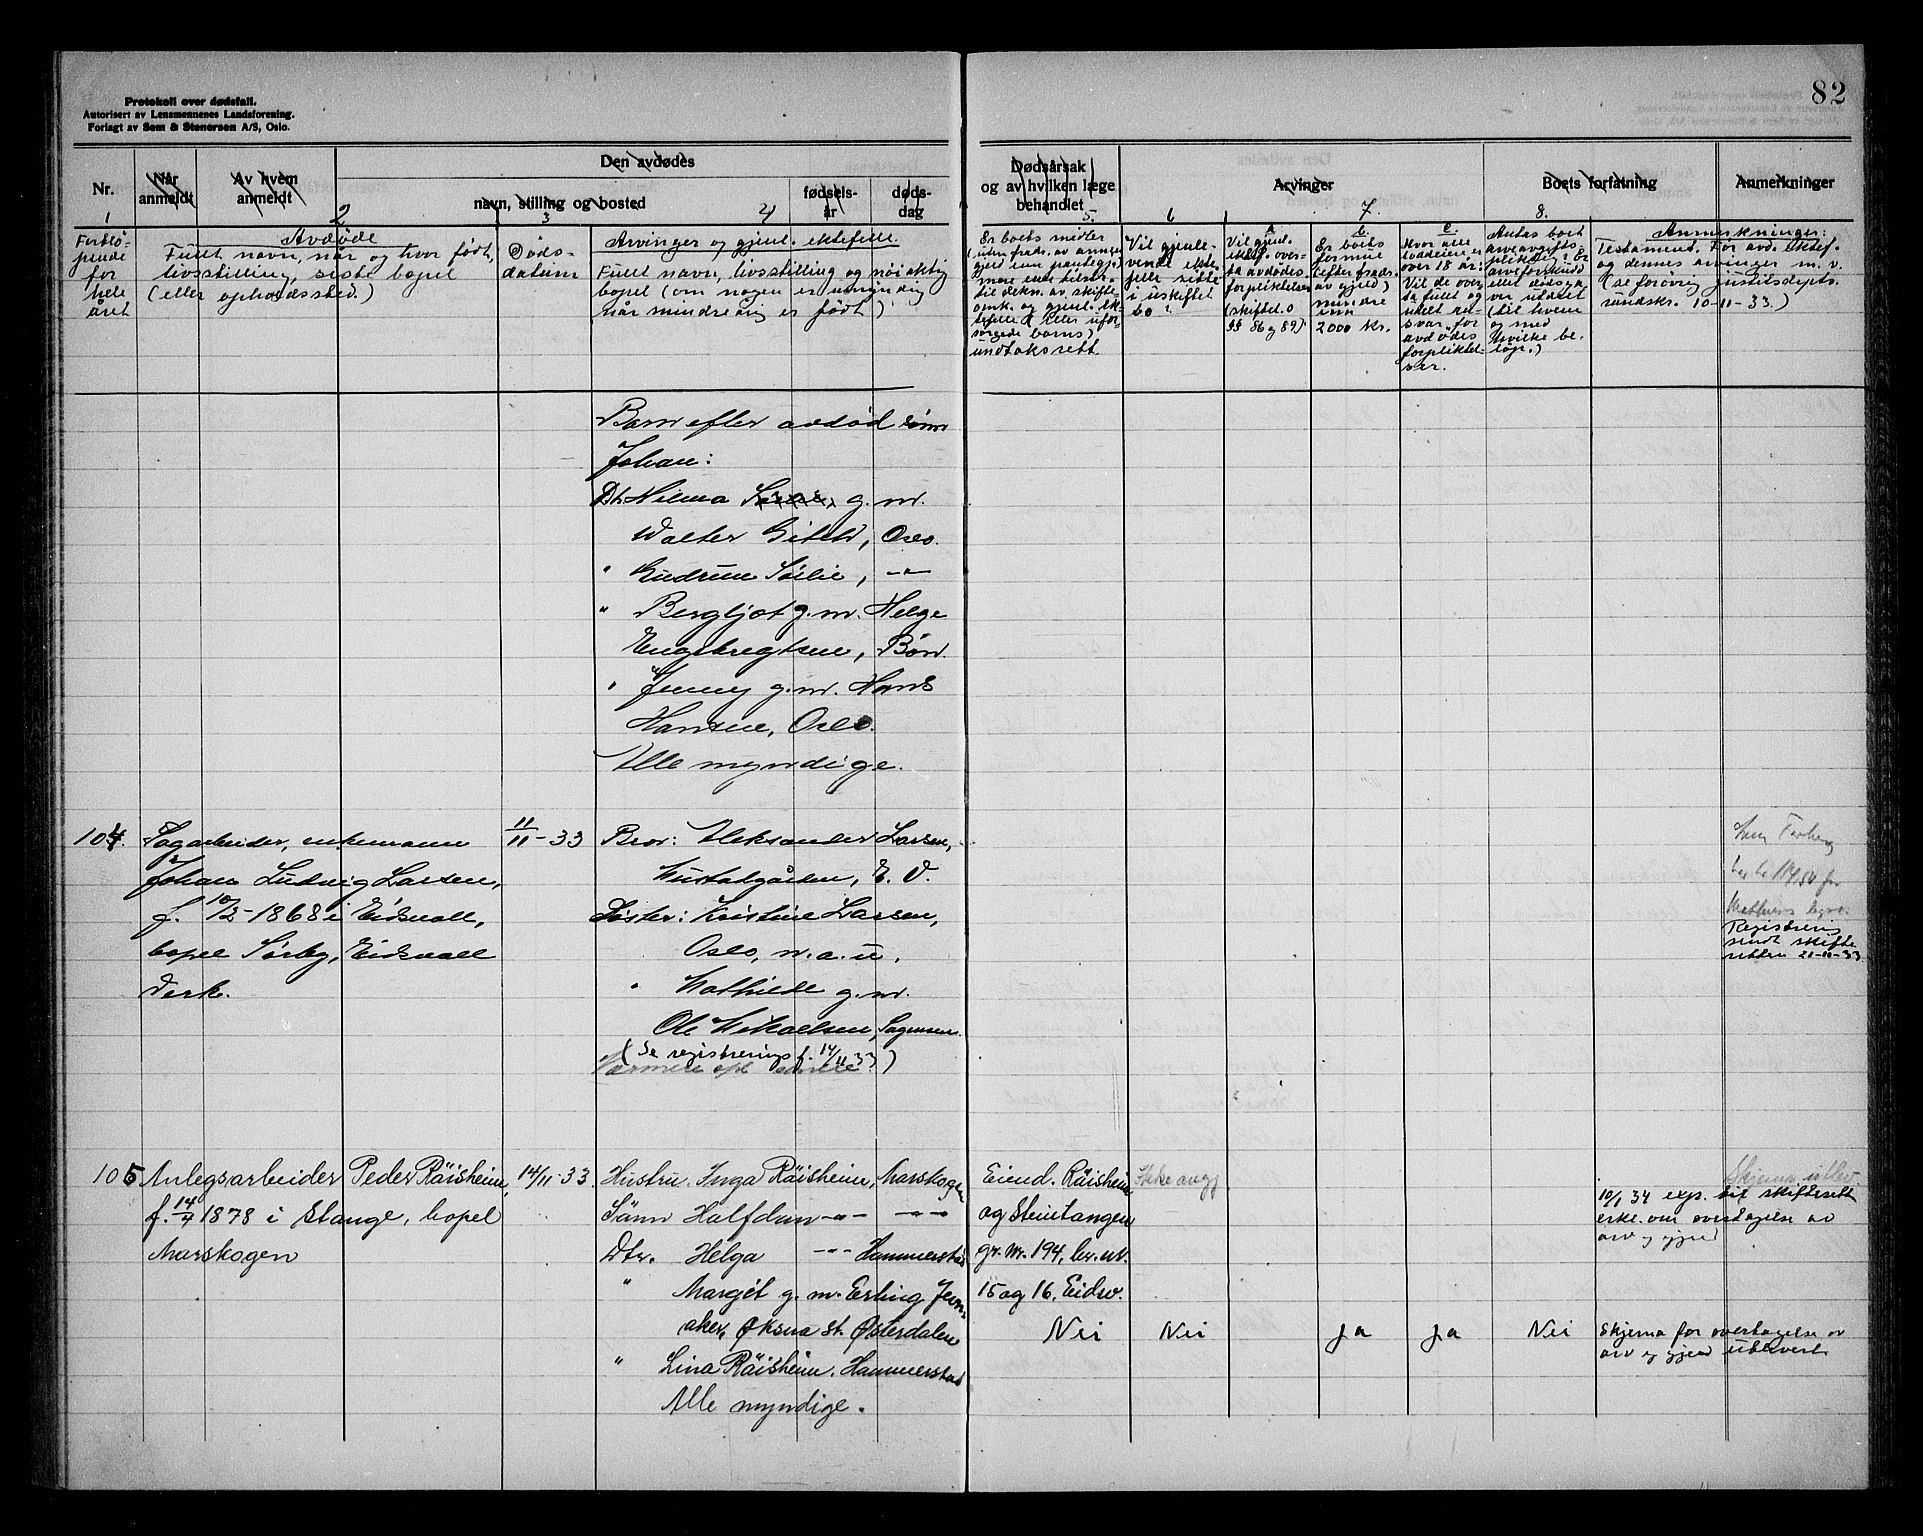 82
Protokoll over dødsfall.
Autorisert av Lensmennenes Landsforening.
Forlagt av Sem & Stenersen A/S, Oslo.
Nr.
Når anmeldt
Av hvem anmeldt
Den avdødes
navn, stilling og bosted
fødselsår
dødsdag
Dødsårsak
og av hvilken læge
behandlet
Arvinger
Boets forfatning
Anmerkninger
1 2 3 4 5. 6 7. 8.
Fortlø-
pende
for
hele
året
Avdøde
Fullt navn, når og hvor født,
livsstilling, siste bopel
(eller opholdssted.)
Døds-
datum
Arvinger og gjenl. ektefelle.
Fullt navn, livsstilling og nøiaktig
bopel (om nogen er umyndig
når mindreårig er født)
Er boets midler
(uten fradr. av annen
gjeld enn pantegj.)
mere enn tilstr.
til dekn. av skifte-
omk. og gjenl. ek-
tefelles (eller ufor-
sørgede barns)
undtaksrett.
Vil gjenle-
vende ekte
felle sitte
i uskiftet
bo?
a.
Vil gjenl.
ektef. over-
ta avdødes
forpliktelser
(skiftel.
§§ 86 og 89)
b.
Er boets
formue
(efter fradr.
av gjeld)
mindre
enn
2000 kr.
c.
Hvor alle
loddeiere er
over 18 år:
Vil de over-
ta fullt og
helt an-
svar for
avdødes
forpliktel-
ser.
Antas boet
arveavgifts-
pliktig? Er
arveforskudd
eller dødsga-
ver utdelt
(til hvem
og med
hvilke be-
løp.)
Anmerkninger:
Testament. For avd. ektef.
og dennes arvinger m. v.
(se forøvrig justisdepts.
rundskr. 10-11-33.)
Barn efter avdød sønn
Johan:
Dtr. Hilma g. m.
Walter , Oslo.
" Gudrun Sørlie, -"-
" Bergljot g. m. Helge
Engebregtsen, Bøn.
" Jenny g. m. Hans
Hansen, Oslo.
Alle myndige.
104.
Sagarbeider, enkemann
Johan Ludvig Larsen,
f. 10/2-1868 i Eidsvoll,
bopel Sørby, Eidsvoll
Verk.
11/11-33
Bror: Aleksander Larsen,
, E. V.
Søster: Kristine Larsen,
Oslo, n. a. u.
" Mathilde g. m.
Ole Mikaelsen, Sagmoen.
(Se registrering f. 14/11 33)
Registrering
sendt skifte
retten 21-11-33
105
Anlegsarbeider Peder Räisheim,
f. 14/4 1878 i Stange, bopel
Marskogen
14/11-33.
Hustru Inga Räisheim, Marskogen
Sönn Halfdan -"- -"-
Dtr. Helga -"- Hammerstad
" Margit g. m. Erling Jevn-
aker, Øksna st. Østerdalen
" Lina Räisheim. Hammerstad
Alle myndige.
Eiend. Räisheim
og Steintangen
gr. nr. 194, br. nr.
15 og 16, Eidsv.
Nei
Ikke avgj
Nei
ja
ja
Nei
Skjema utlev
10/1 34 exp. til skifterett
erkl. om overtagelse av
arv og gjeld
Skjema for overtagelse av
arv og gjeld utlevert